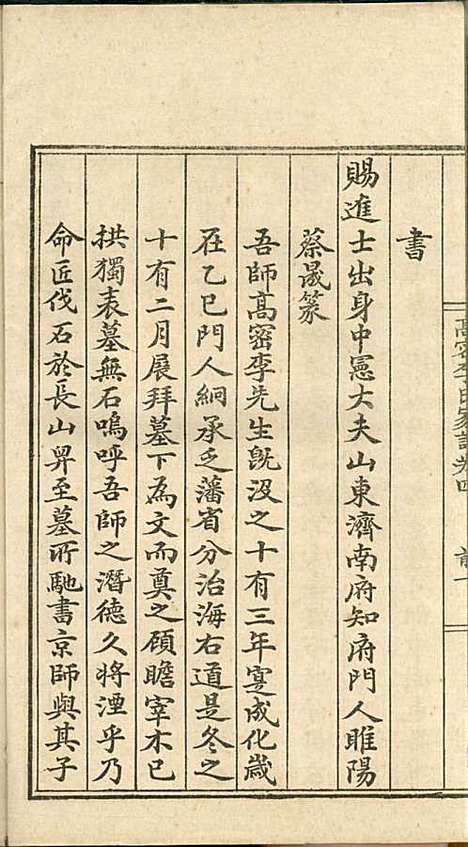 書
賜進士出身中憲大夫山東濟南府知府門人睢陽
蔡晟篆
吾師高密李先生旣沒之十有三年寔成化歲
在乙巳門人絅承乏藩省分治海右道是冬之
十有二月展拜墓下爲文而奠之顧瞻宰木已
拱獨表墓無石嗚呼吾師之潛德久將湮乎乃
命匠伐石於長山舁至墓所馳書京師與其子